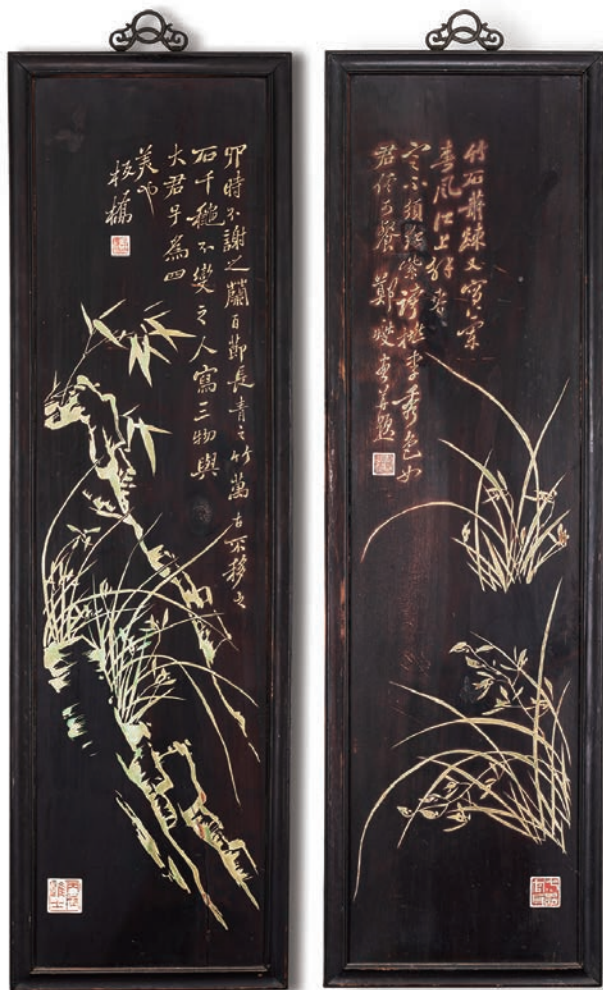 卯時不謝之蘭百節長青之竹萬古不移之
石千穐不變之人寫三物與
大君子為四
美也
板橋
竹石蕭踈又寫蘭
春風江上
寒不須紫誇桃李秀色如
君可餐 鄭燮畫并題